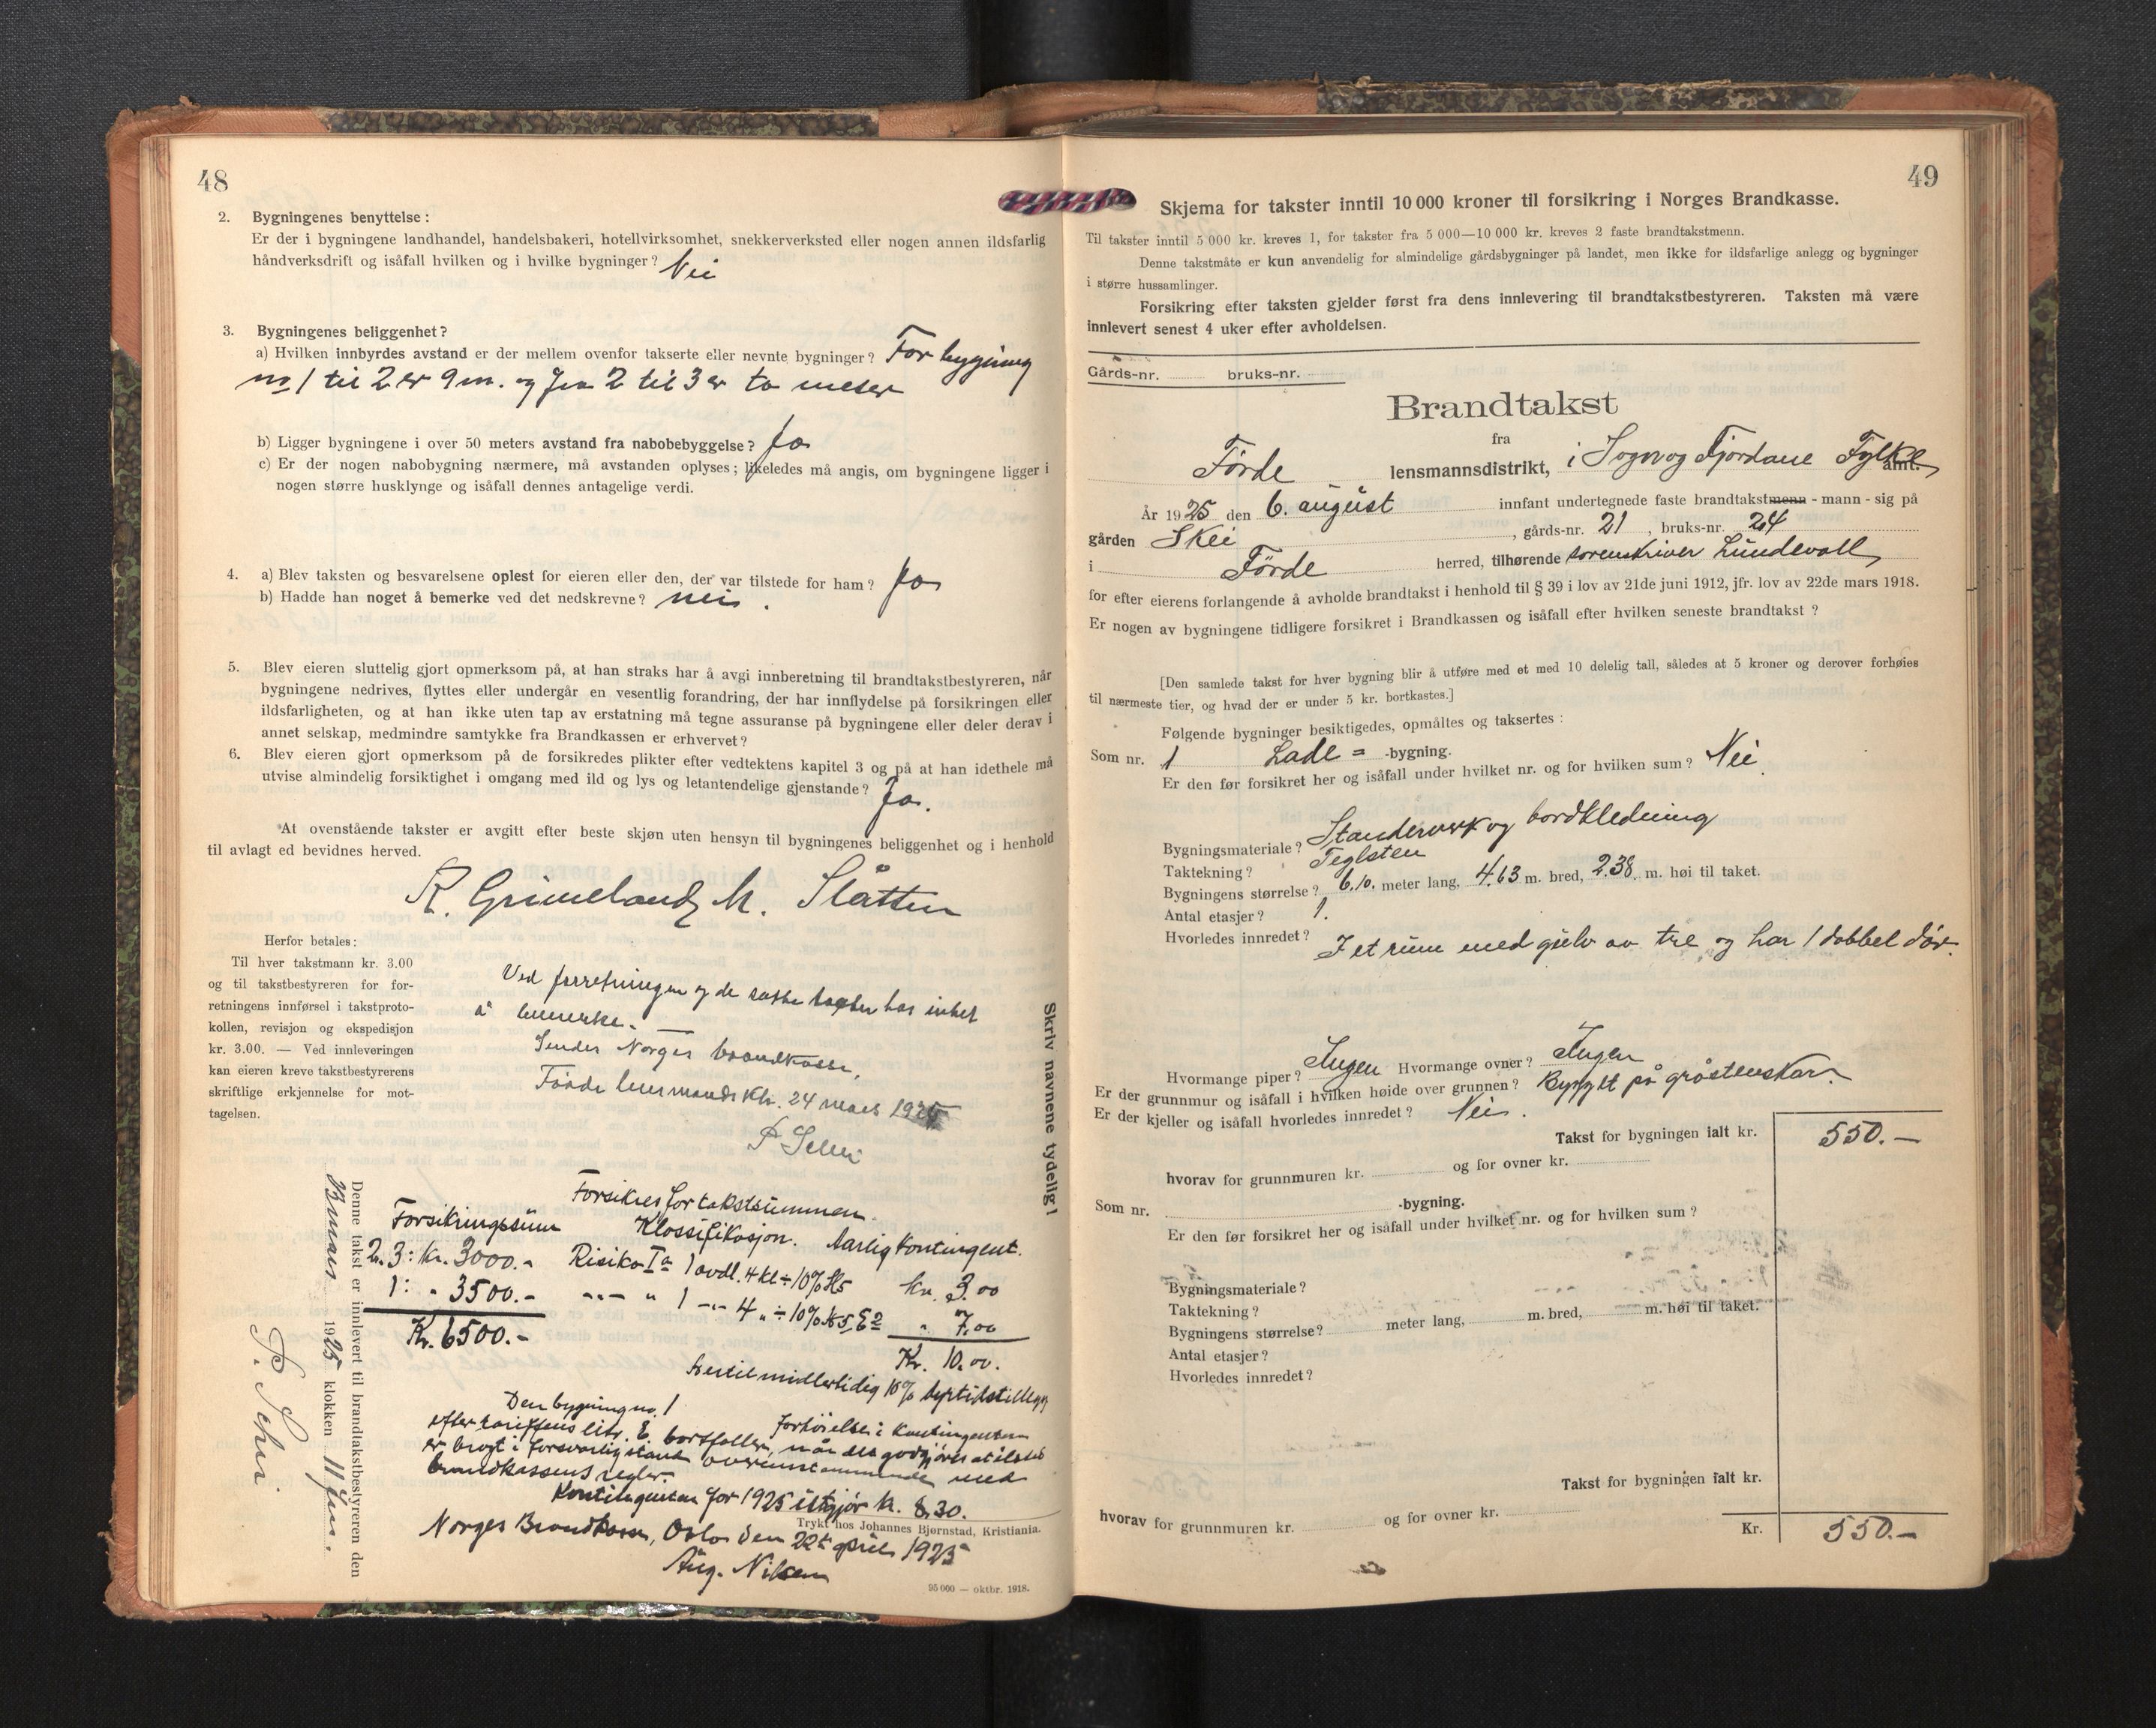 48
2. Bygningenes benyttelse:
Er der i bygningene landhandel, handelsbakeri, hotellvirksomhet, snekkerverksted eller nogen annen ildsfarlig
håndverksdrift og isåfall hvilken og i hvilke bygninger? Nei
3. Bygningenes beliggenhet?
a) Hvilken innbyrdes avstand er der mellem ovenfor takserte eller nevnte bygninger? For bygning
no 1 til 2 er 9 m. og fra 2 til 3 er to meter
b) Ligger bygningene i over 50 meters avstand fra nabobebyggelse? Ja
c) Er der nogen nabobygning nærmere, må avstanden oplyses; likeledes må angis, om bygningene ligger i
nogen større husklynge og isåfall dennes antagelige verdi.
4. a) Blev taksten og besvarelsene oplest for eieren eller den, der var tilstede for ham? Ja
b) Hadde han noget å bemerke ved det nedskrevne? nei.
5. Blev eieren sluttelig gjort opmerksom på, at han straks har å avgi innberetning til brandtakstbestyreren, når
bygningene nedrives, flyttes eller undergår en vesentlig forandring, der har innflydelse på forsikringen eller
ildsfarligheten, og at han ikke uten tap av erstatning må tegne assuranse på bygningene eller deler derav i
annet selskap, medmindre samtykke fra Brandkassen er erhvervet?
6. Blev eieren gjort opmerksom på de forsikredes plikter efter vedtektens kapitel 3 og på at han idethele må
utvise almindelig forsiktighet i omgang med ild og lys og letantendelige gjenstande? Ja.
At ovenstående takster er avgitt efter beste skjøn uten hensyn til bygningenes beliggenhet og i henhold
til avlagt ed bevidnes herved.
R. Grimeland M. Slåtten
Herfor betales:
Til hver takstmann kr. 3.00
og til takstbestyreren for for-
retningens innførsel i takstproto-
kollen, revisjon og ekspedisjon
kr. 3.00. — Ved innleveringen
kan eieren kreve takstbestyrerens
skriftlige erkjennelse for mot-
tagelsen.
Ved forretningen og de satte takster har intet
å bemerke.
Sendes Norges brandkasse.
Førde lensmandsktr. 24 mars 1925
Skriv navnene tydelig!
Denne takst er innlevert til brandtakstbestyreren den
mars 1925 klokken 11
Forsikres for takstsummen.
Forsikringssum Klassifikasjon. Aarlig kontingent.
2. 3: kr. 3000.- Risiko Ia 1 avdl. 4 kl ÷ 10% kr. 3.00
1: " 3500.- " 1 " 4 " ÷ 10% " 7.00
Kr. 6500.- Kr. 10.00.
hertil midlertidig 10% dyrtidstillegg
Den bygning no. 1 forhøielse i kontingenten
efter tariffens litr. E bortfaller, når det godtgjøres at ildsted
er bragt i forsvarlig stand overensstemmende med
brandkassens regler.
Kontingenten for 1925 utgjør kr. 8.30.
Trykt hos Johannes Bjørnstad, Kristiania.
Norges Brandkasse, Oslo den 22 april 1925
Aug. Nilsen
95 000 — oktbr. 1918.
49
Skjema for takster inntil 10 000 kroner til forsikring i Norges Brandkasse.
Til takster inntil 5 000 kr. kreves 1, for takster fra 5 000—10 000 kr. kreves 2 faste brandtakstmenn.
Denne takstmåte er kun anvendelig for almindelige gårdsbygninger på landet, men ikke for ildsfarlige anlegg og bygninger
i større hussamlinger.
Forsikring efter taksten gjelder først fra dens innlevering til brandtakstbestyreren. Taksten må være
innlevert senest 4 uker efter avholdelsen.
Gårds-nr. bruks-nr.
Brandtakst
fra
Førde lensmannsdistrikt, i Sogn og Fjordane Fylke amt.
År 1925 den 6. august innfant undertegnede faste brandtakstmenn - mann - sig på
gården Skei, gårds-nr. 21, bruks-nr. 24
i Førde herred, tilhørende sorenskriver Lundevall
for efter eierens forlangende å avholde brandtakst i henhold til § 39 i lov av 21de juni 1912, jfr. lov av 22de mars 1918.
Er nogen av bygningene tidligere forsikret i Brandkassen og isåfall efter hvilken seneste brandtakst?
[Den samlede takst for hver bygning blir å utføre med et med 10 delelig tall, således at 5 kroner og derover forhøies
til nærmeste tier, og hvad der er under 5 kr. bortkastes.]
Følgende bygninger besiktigedes, opmåltes og taksertes:
Som nr. 1 Lade = -bygning.
Er den før forsikret her og isåfall under hvilket nr. og for hvilken sum? Nei
Bygningsmateriale? Standerverk og bordkledning
Taktekning? Teglsten
Bygningens størrelse? 6.10. meter lang, 4.63 m. bred, 2.38. m. høi til taket.
Antal etasjer? 1.
Hvorledes innredet? I et rum med gulv av tre og har 1 dobbel dør.
Hvormange piper? Ingen Hvormange ovner? Ingen
Er der grunnmur og isåfall i hvilken høide over grunnen? Bygget på gråstenskar.
Er der kjeller og isåfall hvorledes innredet? Nei.
Takst for bygningen ialt kr. 550.—
hvorav for grunnmuren kr. og for ovner kr.
Som nr. -bygning.
Er den før forsikret her og isåfall under hvilket nr. og for hvilken sum?
Bygningsmateriale?
Taktekning?
Bygningens størrelse? meter lang, m. bred, m. høi til taket.
Antal etasjer?
Hvorledes innredet?
Takst for bygningen ialt kr.
hvorav for grunnmuren kr. og for ovner kr.
Kr. 550.—